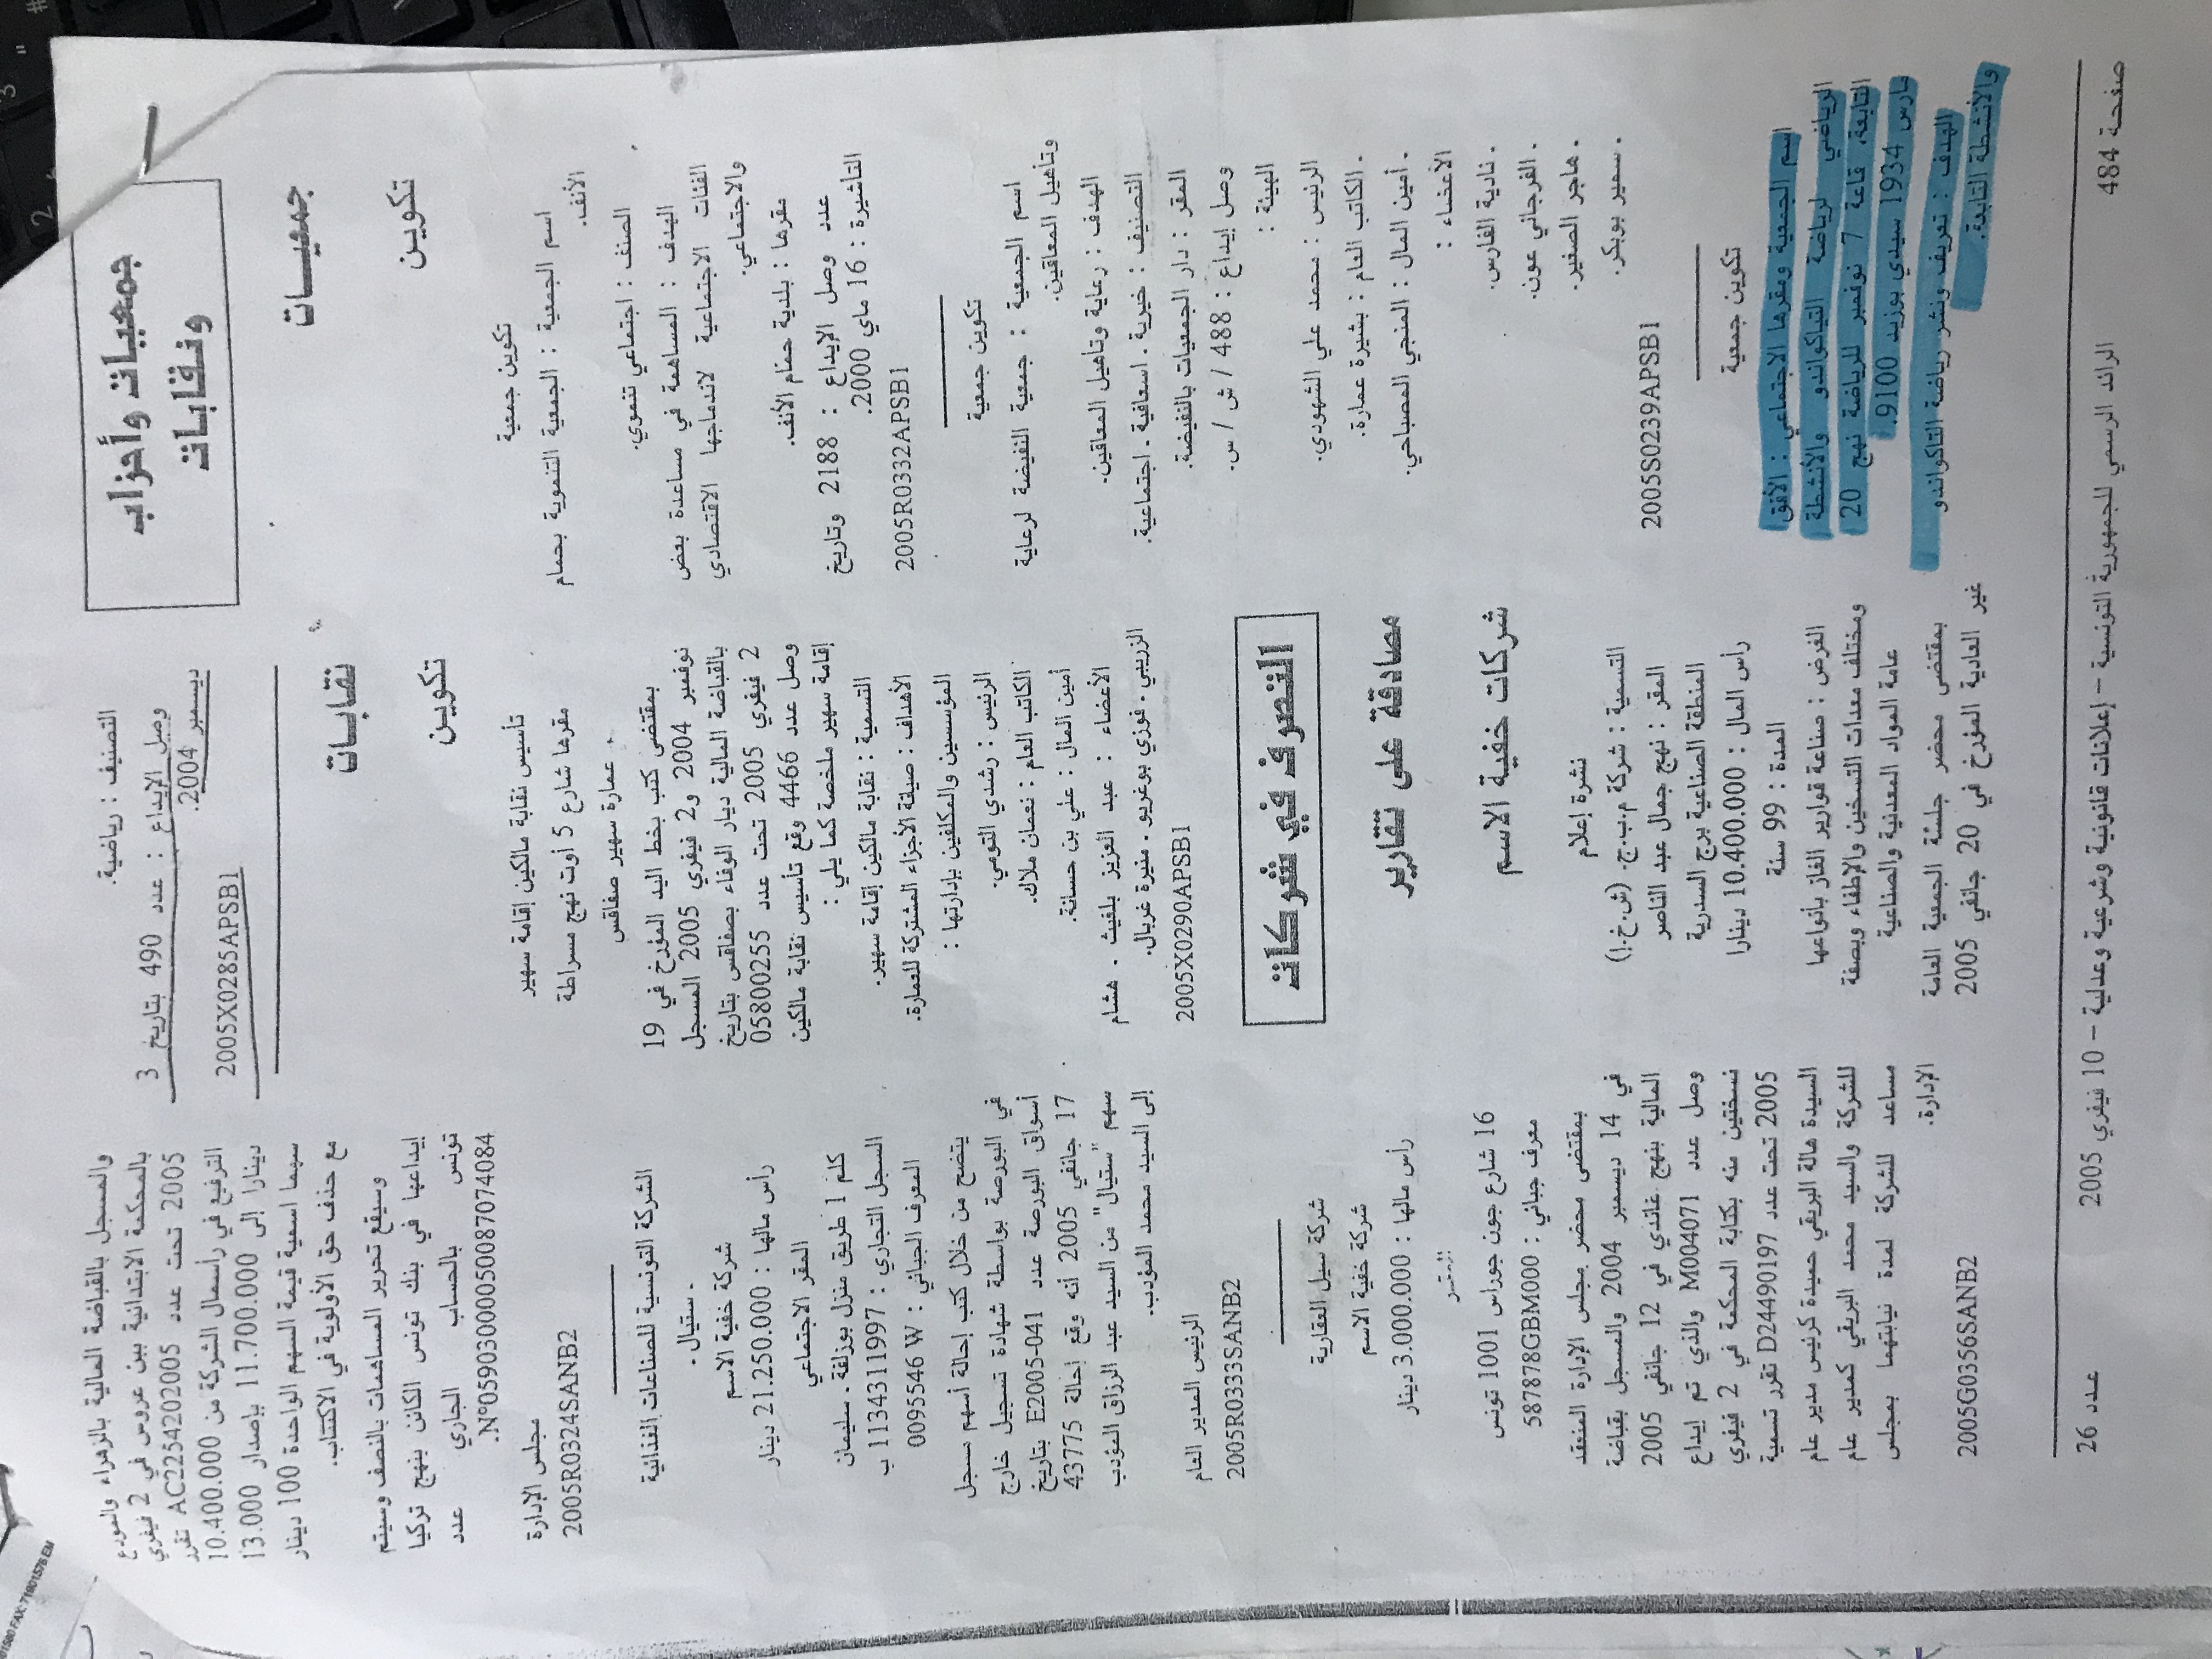 جمعيات وأحزاب
ونقابات
جمعيـــات
تكوين
تكوين جمعية
اسم الجمعية : الجمعية التنموية بحمام
الأنف.
الصنف : اجتماعي تنموي.
الهدف : المساهمة في مساعدة بعض
الفئات الاجتماعية لاندماجها الاقتصادي
والاجتماعي.
مقرها : بلدية حمام الأنف.
عدد وصل الإيداع : 2188 وتاريخ
التأشيرة : 16 ماي 2000.
2005R0332APSB1
تكوين جمعية
اسم الجمعية : جمعية النفيضة لرعاية
وتأهيل المعاقين.
الهدف : رعاية وتأهيل المعاقين.
التصنيف : خيرية . اسعافية . اجتماعية.
المقر : دار الجمعيات بالنفيضة.
وصل إيداع : 488 / ش / س.
الهيئة :
الرئيس : محمد علي الشهودي.
. الكاتب العام : بشيرة عمارة.
. أمين المال : المنجي المصباحي.
الأعضاء :
. نادية الفارس.
. الفرجاني عون.
. هاجر الصغير.
. سمير بوبكر.
2005S0239APSB1
تكوين جمعية
اسم الجمعية ومقرها الاجتماعي : الأفق
الرياضي لرياضة التياكواندو والأنشطة
التابعة، قاعة 7 نوفمبر للرياضة نهج 20
مارس 1934 سيدي بوزيد 9100.
الهدف : تعريف ونشر رياضة التاكواندو
والأنشطة التابعة.
التصنيف : رياضية.
وصل الإيداع : عدد 490 بتاريخ 3
ديسمبر 2004.
2005X0285APSB1
نقابــات
تكوين
تأسيس نقابة مالكين إقامة سهير
مقرها شارع 5 أوت نهج مسراطة
. عمارة سهير صفاقس
بمقتضى كتب بخط اليد المؤرخ في 19
نوفمبر 2004 و2 فيفري 2005 المسجل
بالقباضة المالية ديار الوفاء بصفاقس بتاريخ
2 فيفري 2005 تحت عدد 05800255
وصل عدد 4466 وقع تأسيس نقابة مالكين
إقامة سهير ملخصة كما يلي :
التسمية : نقابة مالكين إقامة سهير.
الأهداف : صيلفة الأجزاء المشتركة للعمارة.
المؤسسين والمكلفين بإدارتها :
الرئيس : رشدي التومي.
الكاتب العام : نعمان ملاك.
أمين المال : علي بن حسانة.
الأعضاء : عبد العزيز بلغيث . هشام
الزريبي . فوزي بوغريو . منيرة غربال.
2005X0290APSB1
التصرف في شركات
مصادقة على تقارير
شركات خفية الاسم
نشرة إعلام
التسمية : شركة م.ب.ج. (ش.خ.ا)
المقر : نهج جمال عبد الناصر
المنطقة الصناعية برج السدرية
رأس المال : 10.400.000 دينارا
المدة : 99 سنة
الغرض : صناعة قوارير الغاز بأنواعها
ومختلف معدات التسخين والإطفاء وبصفة
عامة المواد المعدنية والصناعية
بمقتضى محضر جلسة الجمعية العامة
غير العادية المؤرخ في 20 جانفي 2005
والمسجل بالقباضة المالية بالزهراء والمودع
بالمحكمة الابتدائية ببن عروس في 2 فيفري
2005 تحت عدد AC2254202005 تقرر
الترفيع في رأسمال الشركة من 10.400.000
دينارا إلى 11.700.000 بإصدار 13.000
سهما اسمية قيمة السهم الواحدة 100 دينار
مع حذف حق الأولوية في الاكتتاب.
وسيقع تحرير المساهمات بالنصف وسيتم
إيداعها في بنك تونس الكائن بنهج تركيا
تونس بالحساب الجاري عدد
N°05903000050087074084.
مجلس الإدارة
2005R0324SANB2
الشركة التونسية للصناعات الغذائية
. ستيال .
شركة خفية الاسم
رأس مالها : 21.250.000 دينار
المقر الاجتماعي
كلم 1 طريق منزل بوزلفة . سليمان
السجل التجاري : 1134311997 ب
المعرف الجبائي : 0095546 W
يتضح من خلال كتب إحالة أسهم سجل
في البورصة بواسطة شهادة تسجيل خارج
أسواق البورصة عدد E2005-041 بتاريخ
17 جانفي 2005 أنه وقع إحالة 43775
سهم "ستيال" من السيد عبد الرزاق المؤدب
إلى السيد محمد المؤدب.
الرئيس المدير العام
2005R0333SANB2
شركة سيل العقارية
شركة خفية الاسم
رأس مالها : 3.000.000 دينار
المقر
16 شارع جون جوراس 1001 تونس
معرف جبائي : 587878GBM000
بمقتضى محضر مجلس الإدارة المنعقد
في 14 ديسمبر 2004 والمسجل بقباضة
المالية بنهج غاندي في 12 جانفي 2005
وصل عدد M004071 والذي تم إيداع
نسختين منه بكتابة المحكمة في 2 فيفري
2005 تحت عدد D24490197 تقرر تسمية
السيدة هالة البريقي حميدة كرئيس مدير عام
للشركة والسيد محمد البريقي كمدير عام
مساعد للشركة لمدة نيابتهما بمجلس
الإدارة.
2005G0356SANB2
صفحة 484
الرائد الرسمي للجمهورية التونسية – إعلانات قانونية وشرعية وعدلية – 10 فيفري 2005
عدد 26